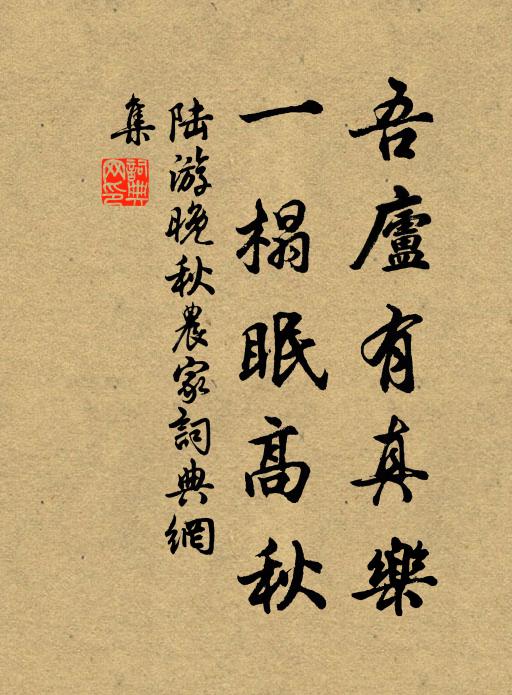 吾廬有真樂
一榻眠高秋
陆游晚秋農家詞典網
集
詞典
网印